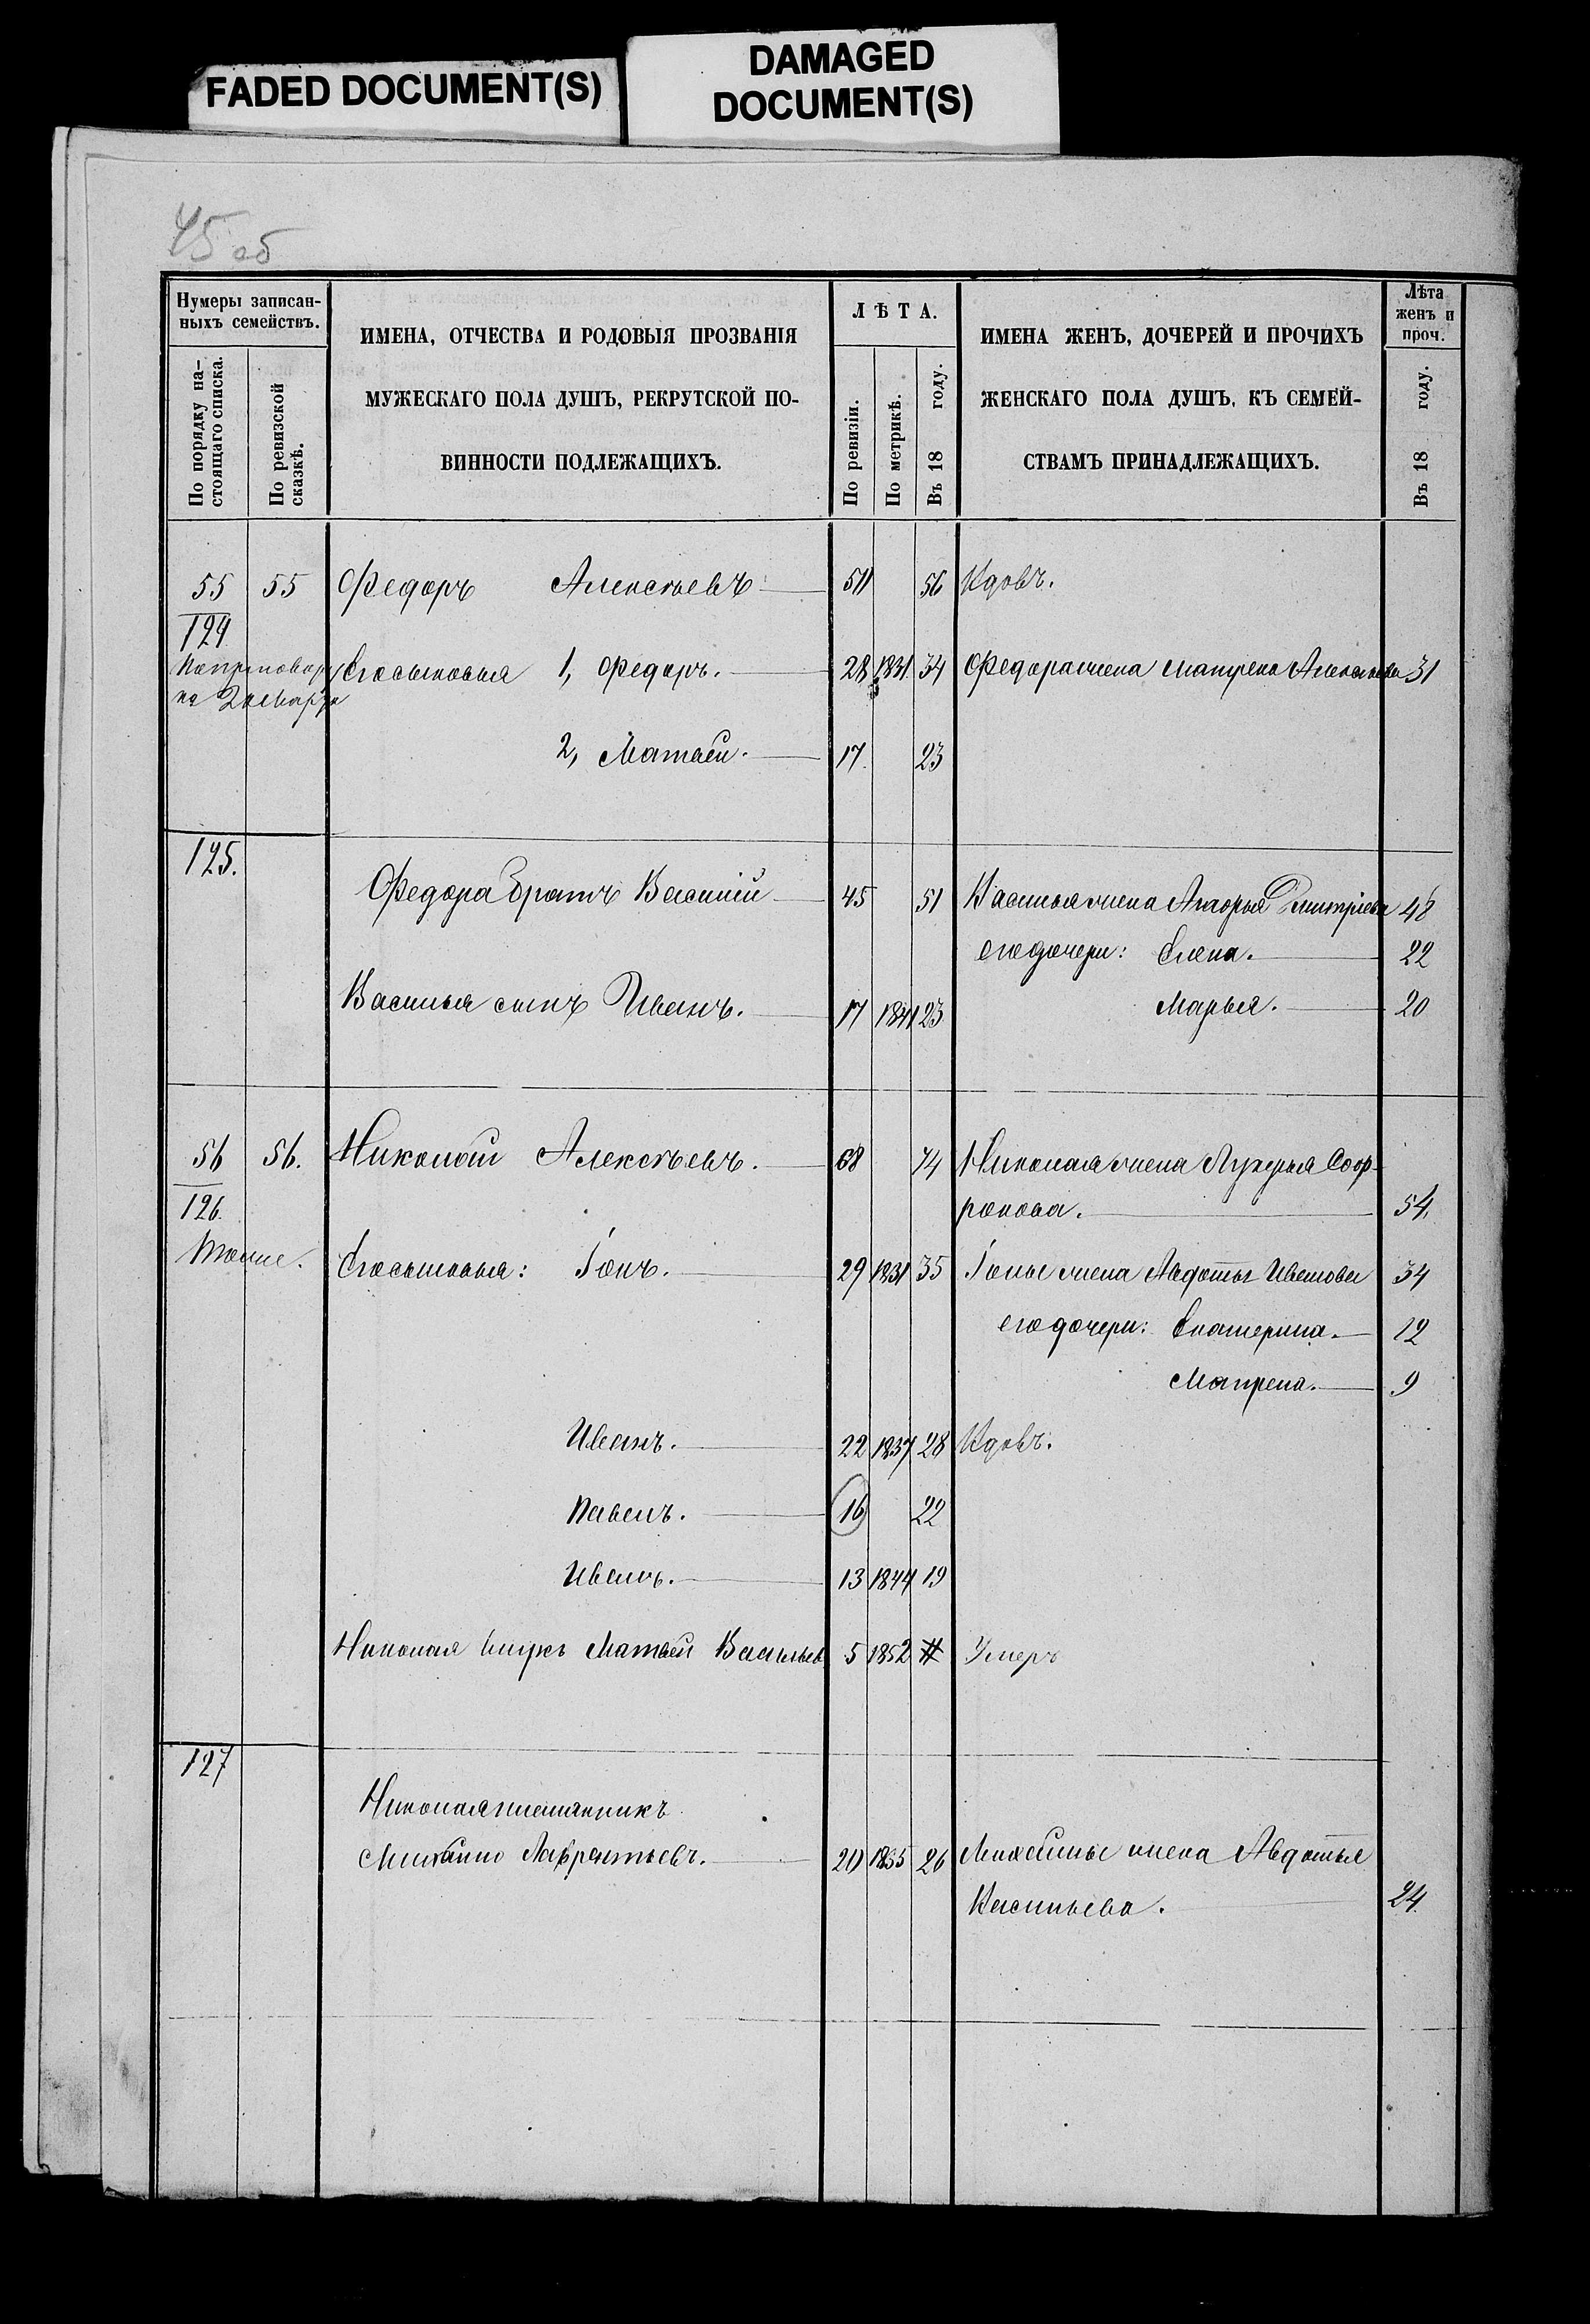 FADED DOCUMENT(S)
DAMAGED
DOCUMENT(S)
45 об
Нумеры записан-
ныхъ семействъ.
По порядку на-
стоящаго списка.
По ревизской
сказкѣ.
ИМЕНА, ОТЧЕСТВА И РОДОВЫЯ ПРОЗВАНІЯ
МУЖЕСКАГО ПОЛА ДУШЪ, РЕКРУТСКОЙ ПО-
ВИННОСТИ ПОДЛЕЖАЩИХЪ.
ЛѢТА.
По ревизіи.
По метрикѣ.
Въ 18 году.
ИМЕНА ЖЕНЪ, ДОЧЕРЕЙ И ПРОЧИХЪ
ЖЕНСКАГО ПОЛА ДУШЪ, КЪ СЕМЕЙ-
СТВАМЪ ПРИНАДЛЕЖАЩИХЪ.
Лѣта
женъ и
проч.
Въ 18 году.
55 55 Федоръ Алексѣевъ 56 Вдовъ.
124
Его сыновья 1, Федоръ. 28 1831 34 Федора жена Матрена 31
2, Матвѣй. 17 23
125.
Федора братъ Василій 45 51 Василья жена Дмитріева 48
его дочери: Елена. 22
Василья сынъ Иванъ. 17 1841 23 Марья. 20
56 56. Николай Алексѣевъ. 68 74 Николая жена Лукерья Соф-
126. ронова. 54.
Тоже. Его сыновья: Іонъ. 29 1831 35 Іоны жена Авдотья Иванова 34
его дочери: Екатерина. 12
Матрена. 9
Иванъ. 22 1837 28 Вдовъ.
Павелъ. 16 22
Иванъ. 13 1844 19
Николая внукъ Матвѣй Васильев 5 1852 Умеръ
127
Николая племянникъ
Михайло Лаврентьевъ. 20 1835 26 Михайлы жена Авдотья
Васильева. 24.